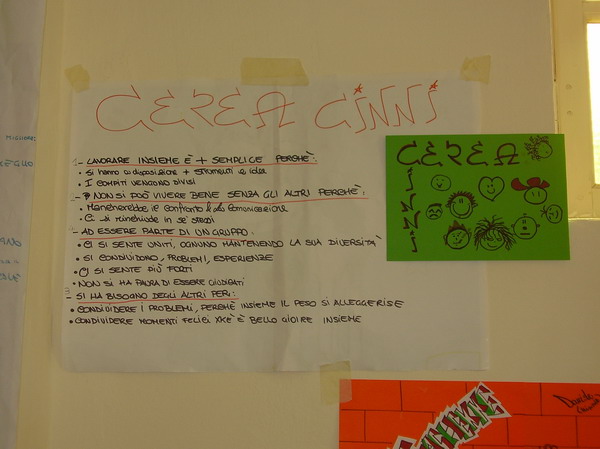 CEREA GINNI
- LAVORARE INSIEME È + SEMPLICE PERCHÈ:
• SI HANNO A DISPOSIZIONE + STRUMENTI E IDEE
• I COMPITI VENGONO DIVISI
- NON SI PUÒ VIVERE BENE SENZA GLI ALTRI PERCHÈ:
• MANCHEREBBE IL CONFRONTO E LA COMUNICAZIONE
• CI SI RINCHIUDE IN SE STESSI
- AD ESSERE PARTE DI UN GRUPPO:
• CI SI SENTE UNITI, OGNUNO MANTENENDO LA SUA DIVERSITÀ
• SI CONDIVIDONO, PROBLEMI, ESPERIENZE
• CI SI SENTE PIÙ FORTI
• NON SI HA PAURA DI ESSERE GIUDICATI
- SI HA BISOGNO DEGLI ALTRI PER:
• CONDIVIDERE I PROBLEMI, PERCHÈ INSIEME IL PESO SI ALLEGGERISE
• CONDIVIDERE MOMENTI FELICI XKÈ È BELLO GIOIRE INSIEME
CEREA
GINNI
Davide